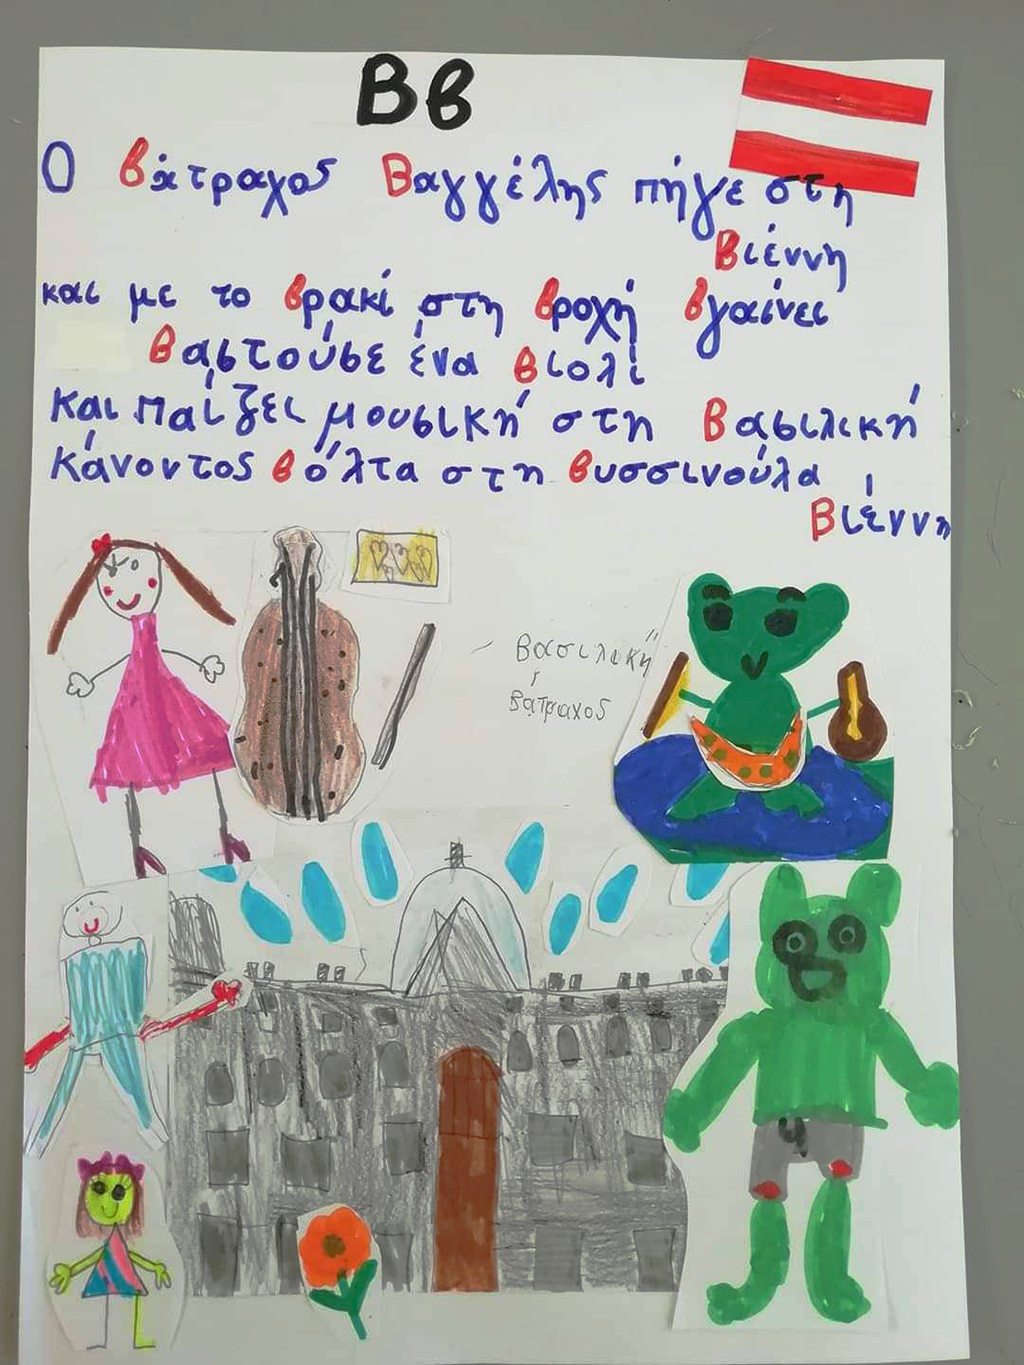 Β β
Ο βάτραχος Βαγγέλης πήγε στη
Βιέννη
και με το βρακί στη βροχή βγαίνει
Βαστούσε ένα βιολί
και παίζει μουσική στη Βασιλική
κάνοντος βόλτα στη βυσσινούλα
Βιέννη
Βασιλική
Βάτραχος